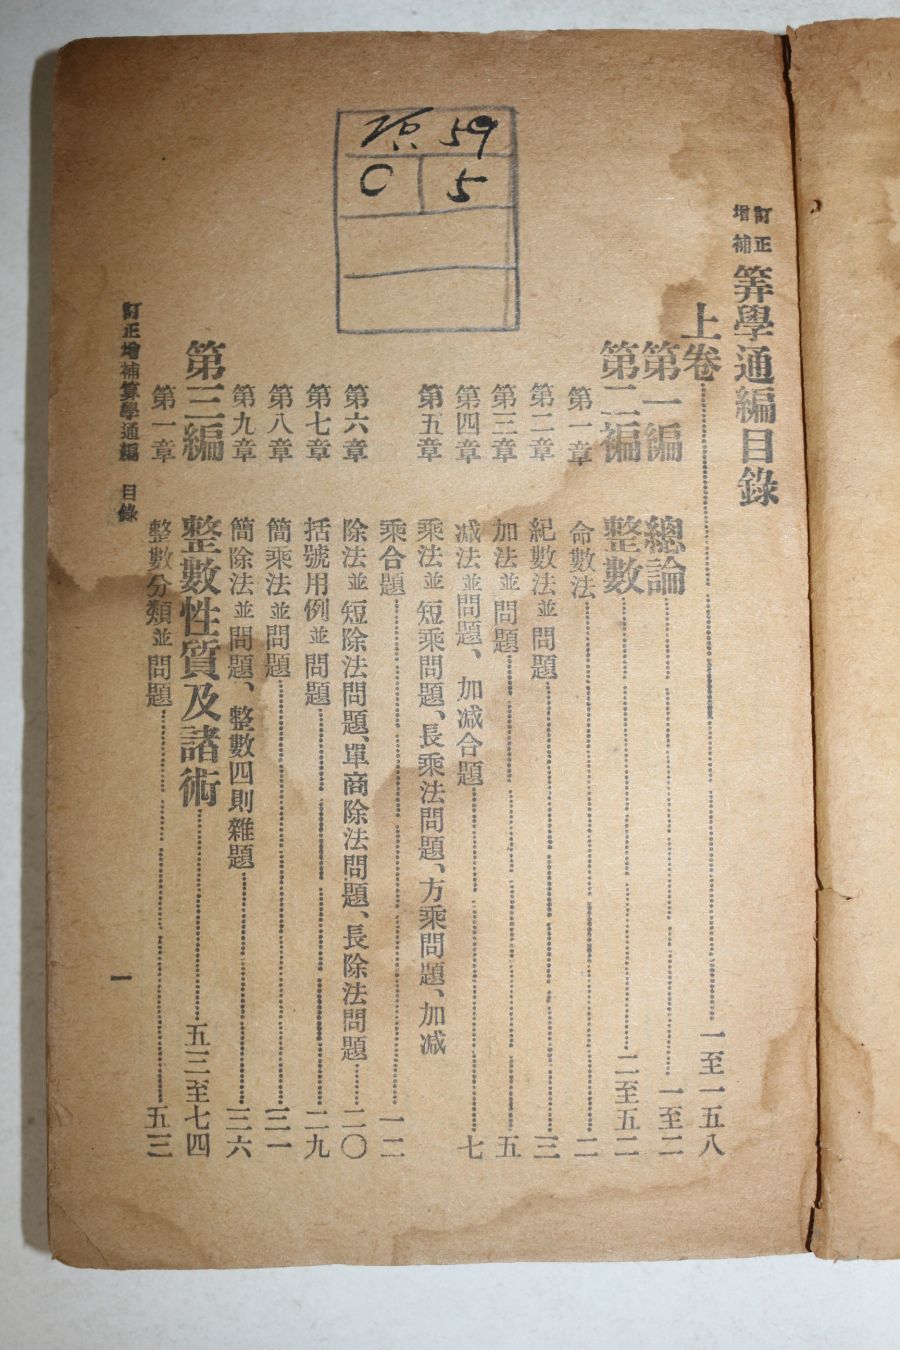 訂正增補 筭學通編目錄
上卷 一至一五八
第一編 總論 一至二
第二編 整數 二至五二
第一章 命數法 二
第二章 紀數法並問題 三
第三章 加法並問題 五
第四章 減法並問題、加減合題 七
第五章 乘法並短乘問題、長乘法問題、方乘問題、加減
乘合題 一二
第六章 除法並短除法問題、單商除法問題、長除法問題 二〇
第七章 括號用例並問題 二九
第八章 簡乘法並問題 三一
第九章 簡除法並問題、整數四則雜題 三六
第三編 整數性質及諸術 五三至七四
第一章 整數分類並問題 五三
訂正增補算學通編 目錄
一
59
C 5